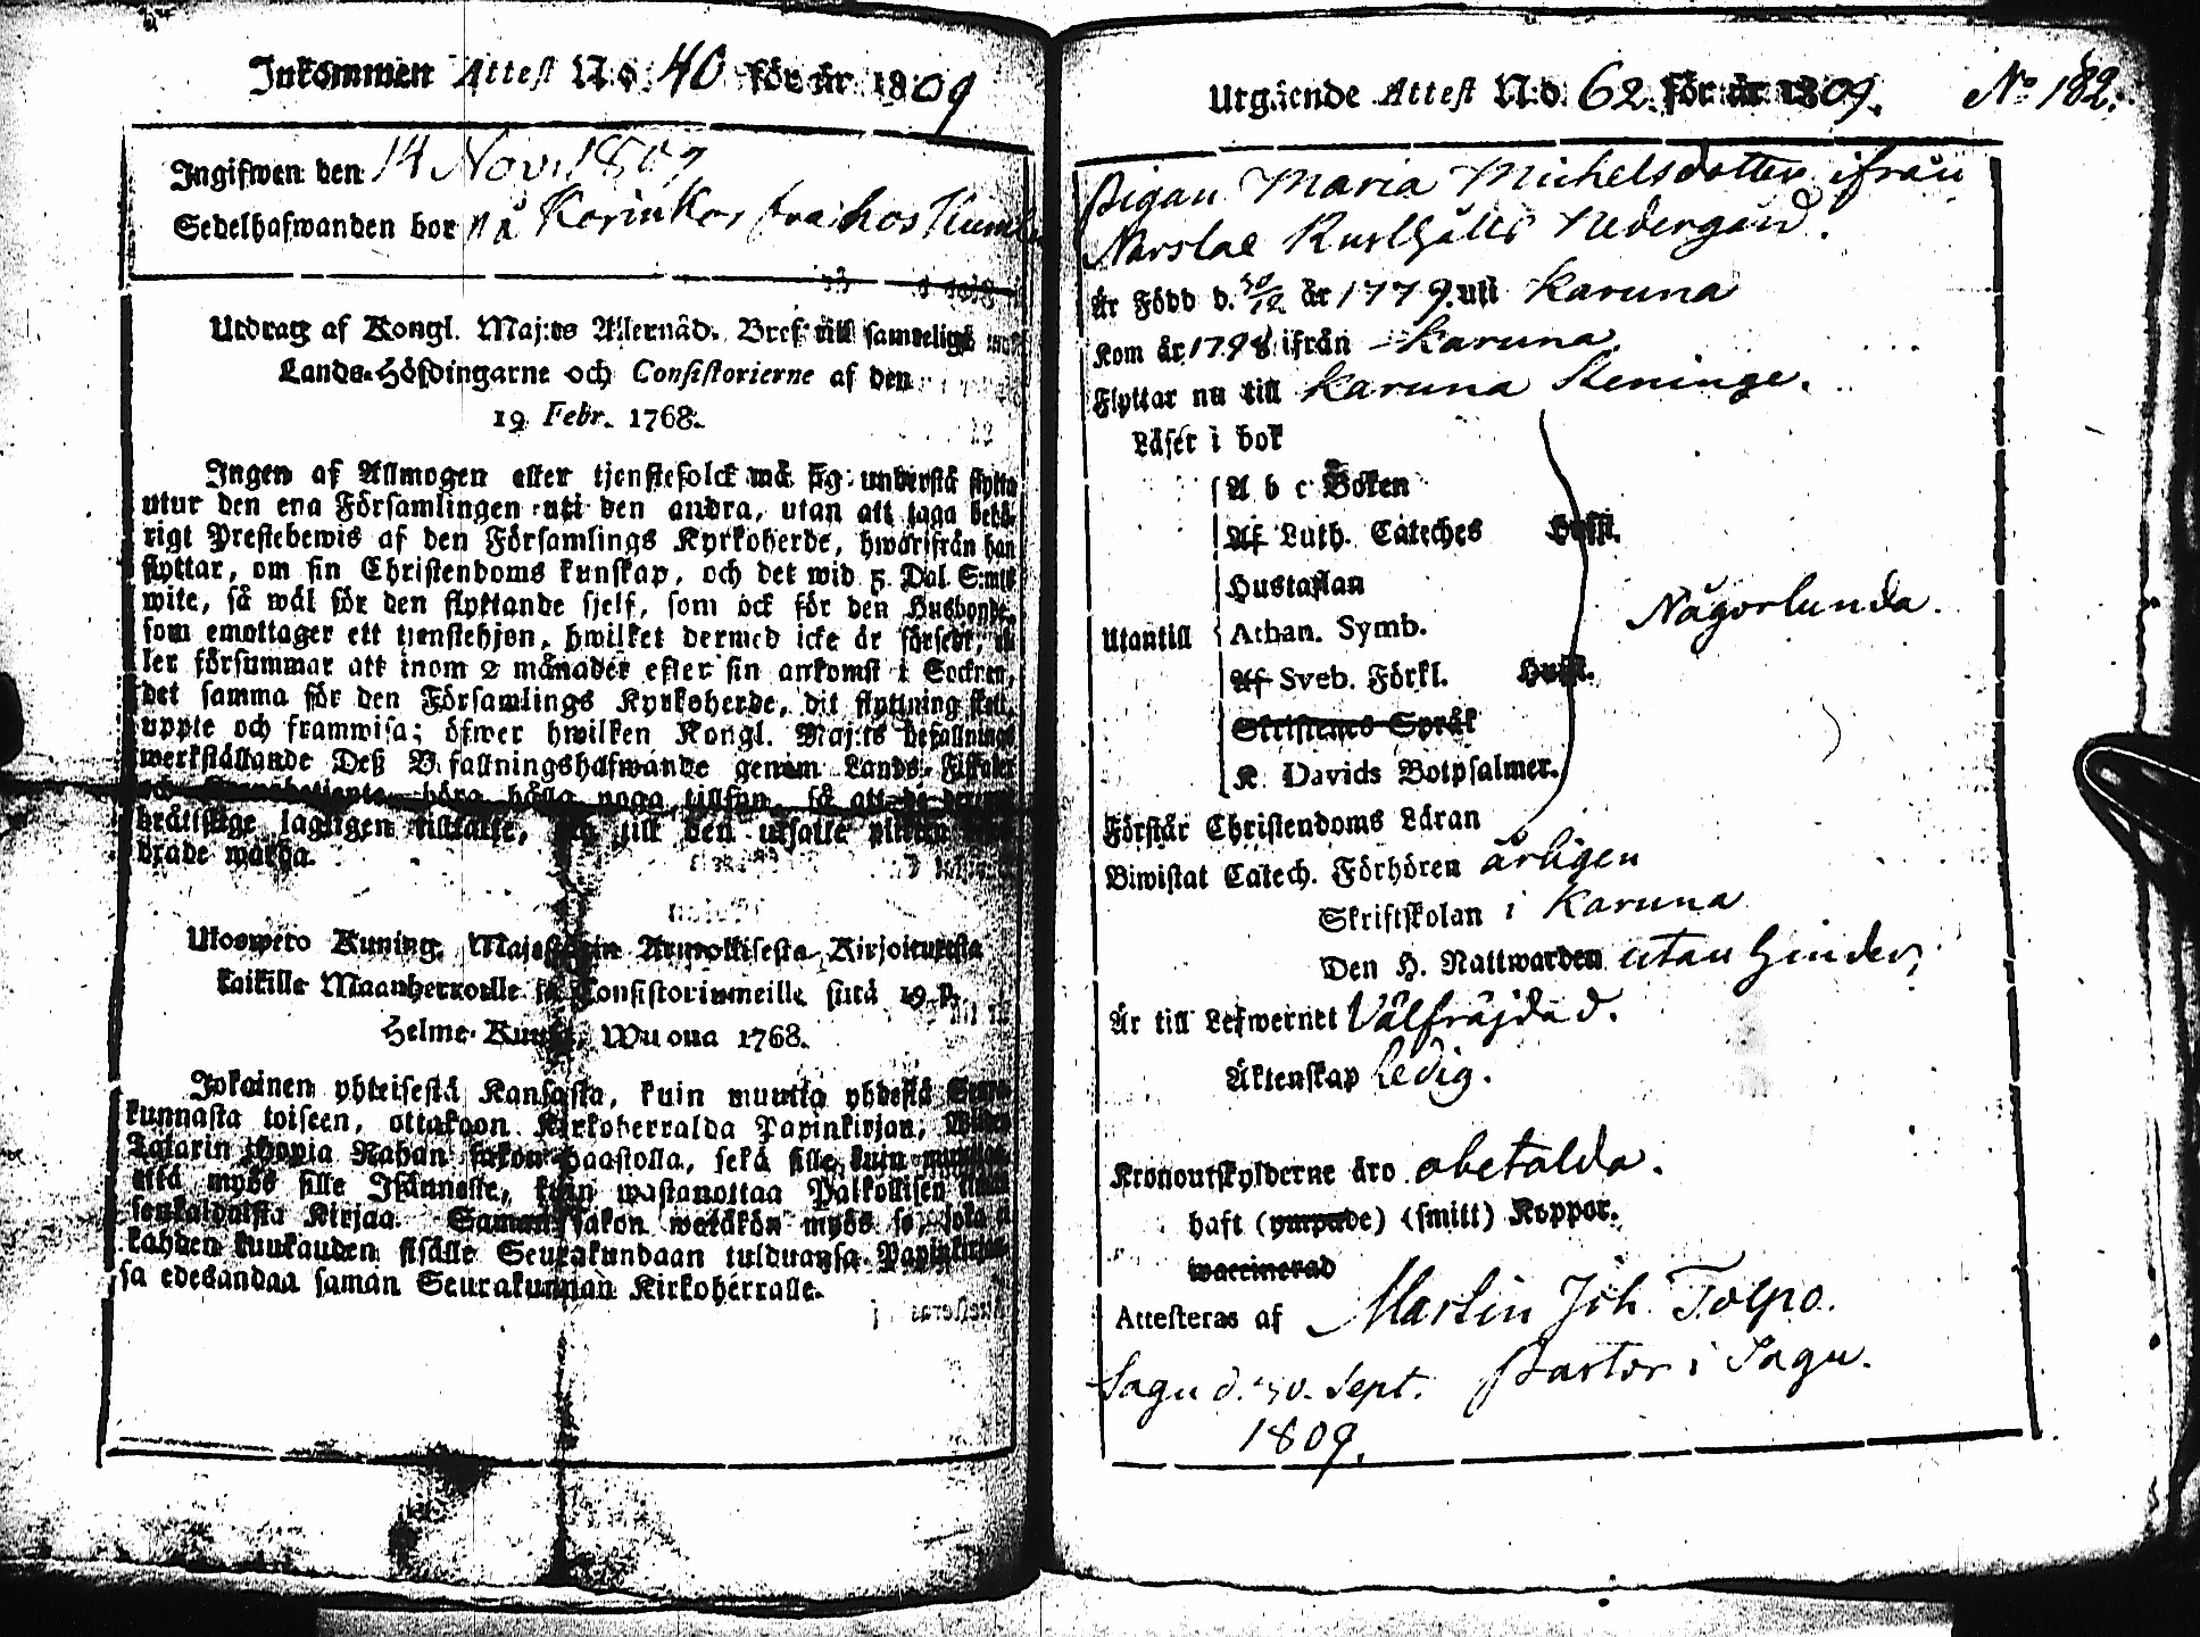 Inkommen Attest N:o 40 för år 1809
Ingifwen den 14 Nov. 1809
Sedelhafwanden bor på hos
Utdrag af Kongl. Maj:ts Allernåd. Bref till samtelige
Lands-Höfdingarne och Consistorierne af den
19 Febr. 1768.
Ingen af Allmogen eller tjenstefolck må sig understå flytta
utur den ena Församlingen uti den andra, utan att taga behö-
rigt Prestebewis af den Församlings Kyrkoherde, hwarifrån han
flyttar, om sin Christendoms kunskap, och det wid 5. Dal. S:mts
wite, så wäl för den flyttande sjelf, som ock för den Husbonde,
som emottager ett tjenstehjon, hwilket dermed icke är försedt, el-
ler försummar att inom 2 månader efter sin ankomst i Socknen,
det samma för den Församlings Kyrkoherde, dit flyttning skett,
uppte och framwisa; öfwer hwilken Kongl. Maj:ts befallnings
werkställande Deß Befallningshafwande genom Lands-Fiskaler
böra hålla noga tillsyn, så att
lagligen till den utsatte
brade warda.
Ulosweto Kuning. Majestetin Armollisesta Kirjoituxesta
kaikille Maanherroille ja Consistoriumeille siitä 19 p.
Helme-Kuusa, Wuona 1768.
Jokainen yhteisestä Kansasta, kuin muutta yhdestä Seura-
kunnasta toiseen, ottakoon Kirkoherralda Papinkirjan, Wiiden
Talarin Hopia Rahan sakon haastolla, sekä sille kuin muuttaa,
että myös sille Isännälle, kuin wastanottaa Palkollisen ilman
senkaldaista Kirjaa. Saman sakon wetäkön myös se, joka ei
kahden kuukauden sisälle Seurakundaan tulduansa Papinkirjan-
sa edesandaa saman Seurakunnan Kirkoherralle.
Utgående Attest N:o 62 för år 1809. No 182.
Pigan Maria Michelsdotter ifrån
Nedergård.
Är Född d. 30/12 år 1779 uti Karuna
Kom år 1798 ifrån Karuna.
Flyttar nu till Karuna Steninge.
Läser i bok
A b c Boken
Af Luth. Cateches
Hustaflan
Någorlunda.
Utantill Athan. Symb.
Af Sveb. Förkl.
Skriftenes Språk
K. Davids Botpsalmer.
Förstår Christendoms Läran
Biwistat Catech. Förhören årligen
Skriftskolan i Karuna
Den H. Nattwarden utan hinder,
Är till Lefwernet Välfräjdad.
Äktenskap ledig.
Kronoutskylderne äro obetalda.
haft (ympade) (smitt) Koppor.
waccinerad
Attesteras af Martin Joh. Tolpo.
Sagu d. 30. Sept. Pastor i Sagu.
1809.